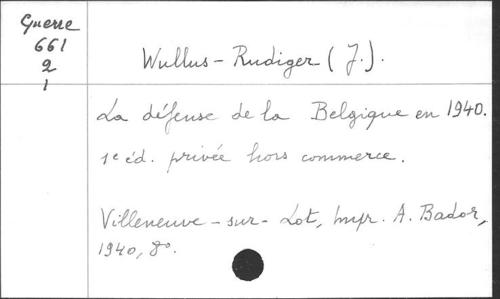 Guerre
661
2
1
Wullus-Rudiger (J.).
La défense de la Belgique en 1940.
1e éd. privée hors commerce.
Villeneuve-sur-Lot, Impr. A. Bador,
1940, 8°.